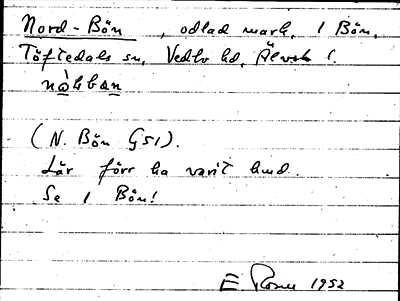 Nord-Bön, odlad mark, 1 Bön,
Töftedals sn, Vedbo hd, Älvsb l.
nòḷban
(N. Bön G51).
Lär förr ha varit hmd.
Se 1 Bön!
E. Rosell 1952